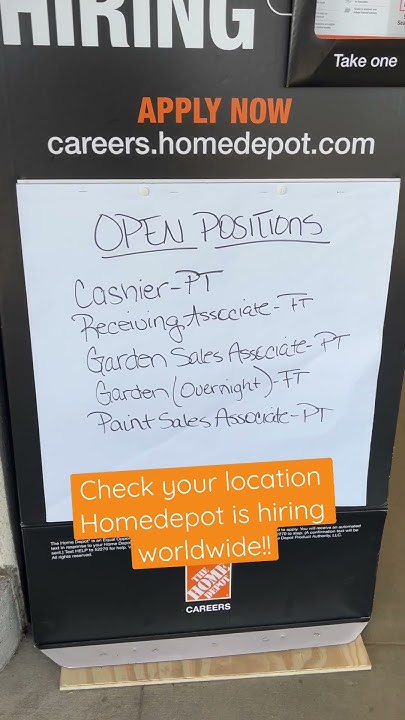 HIRING
Take one
APPLY NOW
careers.homedepot.com
OPEN POSITIONS
Cashier-PT
Receiving Associate-FT
Garden Sales Associate-PT
Garden (Overnight)-FT
Paint Sales Associate-PT
Check your location
Homedepot is hiring
worldwide!!
The Home Depot is an Equal Oppor
to apply. You will receive an automated
text in response to your Home Depo
to 52270 to stop. (A confirmation text will be
sent.) Text HELP to 52270 for help.
Depot Product Authority, LLC.
All rights reserved.
THE
HOME
DEPOT
CAREERS